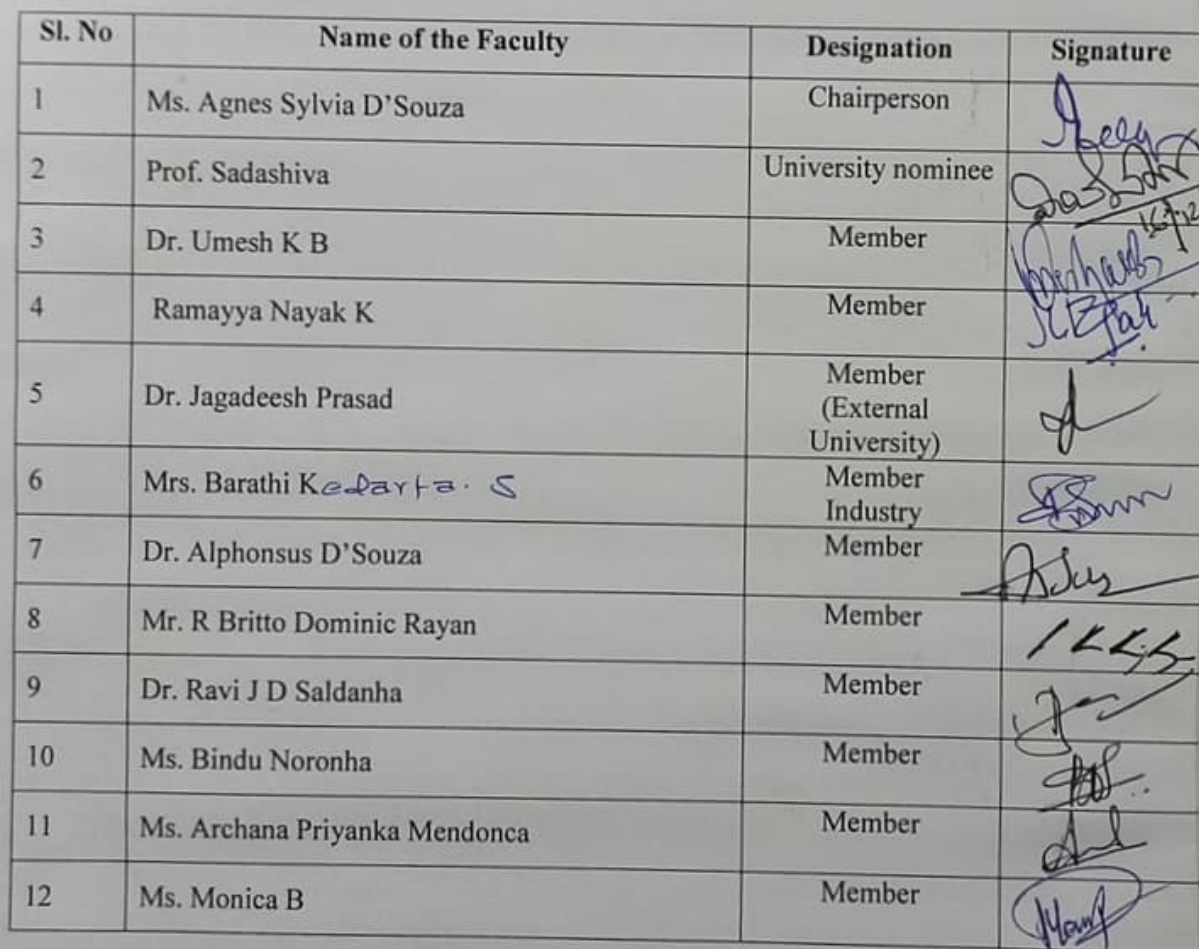 Sl. No Name of the Faculty Designation Signature
1 Ms. Agnes Sylvia D'Souza Chairperson
2 Prof. Sadashiva University nominee
3 Dr. Umesh K B Member
4 Ramayya Nayak K Member
5 Dr. Jagadeesh Prasad Member
(External
University)
6 Mrs. Barathi Kedarta. S Member
Industry
7 Dr. Alphonsus D'Souza Member
8 Mr. R Britto Dominic Rayan Member
9 Dr. Ravi J D Saldanha Member
10 Ms. Bindu Noronha Member
11 Ms. Archana Priyanka Mendonca Member
12 Ms. Monica B Member